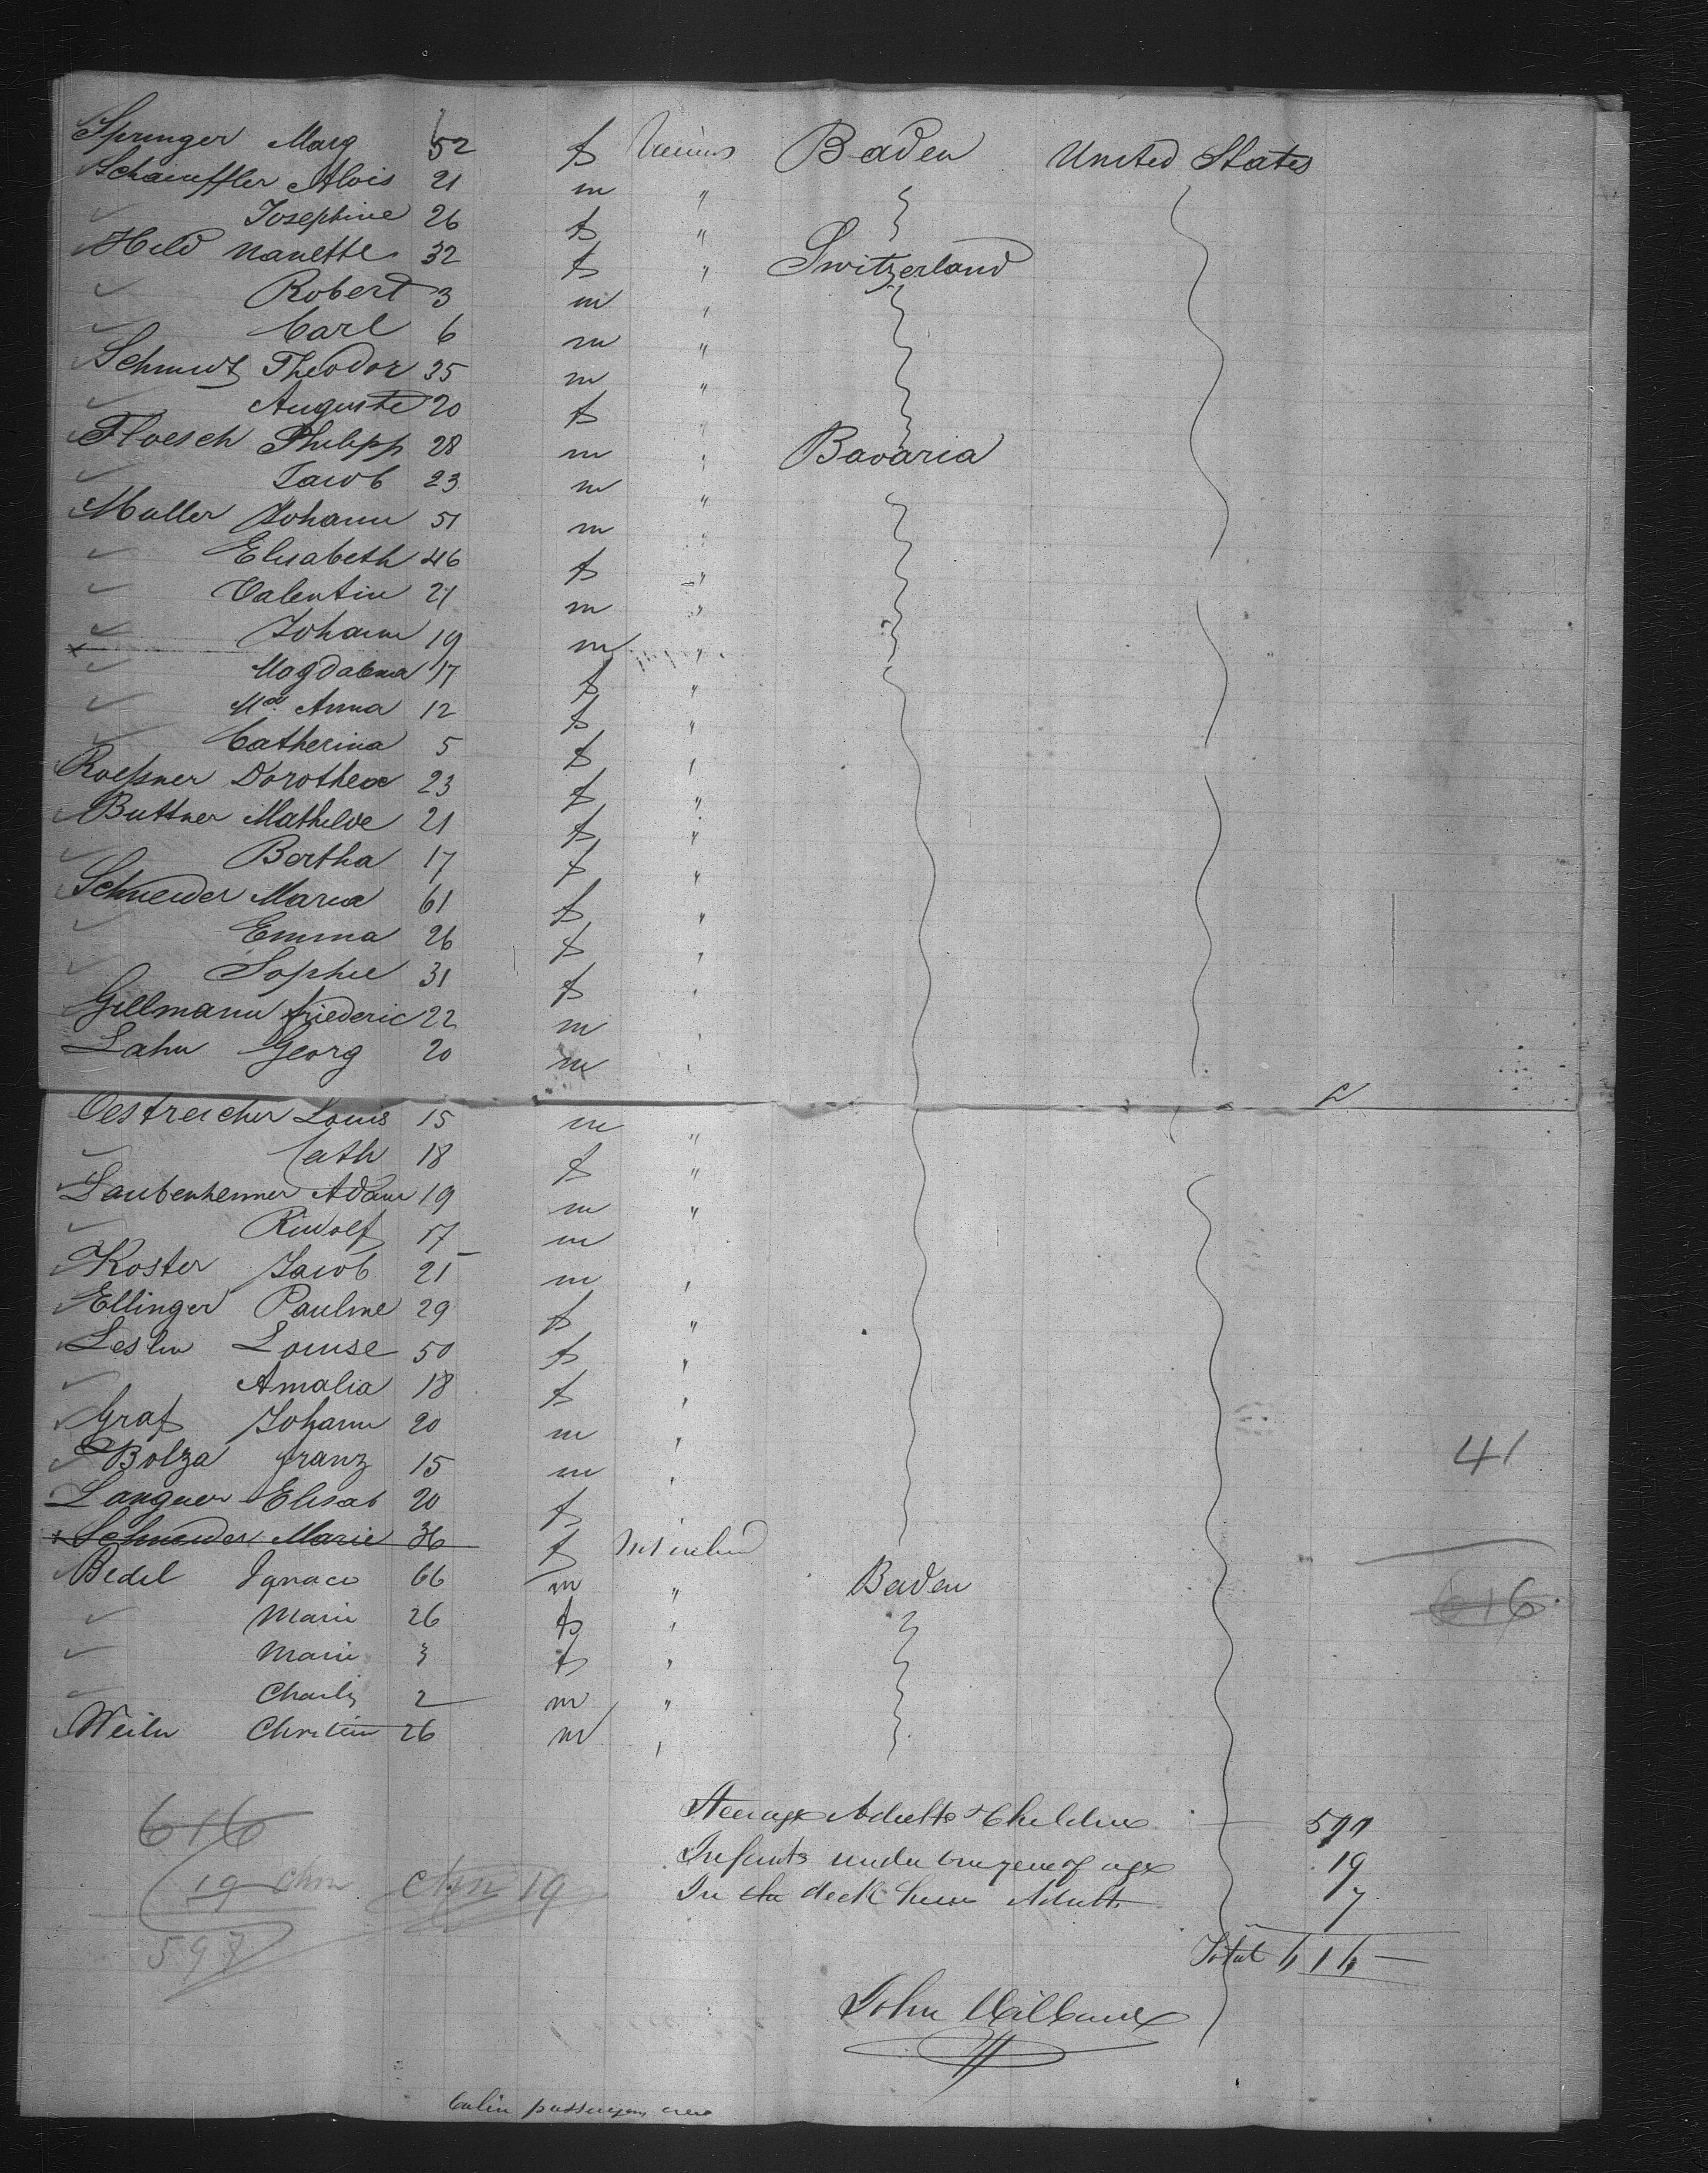 Springer Marg 52 f Various Baden United States
Schaeuffler Alois 21 m "
✓ Josephine 26 f "
Held Nanette 32 f " Switzerland
✓ Robert 3 m "
✓ Carl 6 m "
Schmutz Theodor 35 m "
✓ Auguste 20 f "
Floesch Philipp 28 m " Bavaria
✓ Jacob 23 m "
Muller Johann 51 m "
✓ Elisabeth 46 f "
✓ Valentin 21 m "
✓ Johann 19 m "
✓ Magdalena 17 f "
✓ Ma. Anna 12 f "
✓ Catherina 5 f "
Roeßner Dorothea 23 f "
Buttner Mathilde 21 f "
✓ Bertha 17 f "
Schneider Maria 61 f "
✓ Emma 26 f "
✓ Sophie 31 f "
Gillmann Friederic 22 m "
Lahn Georg 20 m "
Oestreicher Louis 15 m "
✓ Cath 18 f "
Laubenheimer Adam 19 m "
✓ Rudolf 17 m
Koster Jacob 21 m "
Ellinger Pauline 29 f "
Leslin Louise 50 f "
✓ Amalia 18 f "
Graf Johann 20 m "
Bolza Franz 15 m "
41
Languer Elisab 20 f
Schneider Marie 36 f
Bedel Ignace 66 m " Baden
616
✓ Marie 26 f "
✓ Marie 3 f "
✓ Charles 2 m "
Weiler 26 m "
Steerage Adults & Children 590
616
Infants under one year of age 19
19 Chn Chn 19
In the deck house Adults 7
597
Total 616
John
Cabin passengers